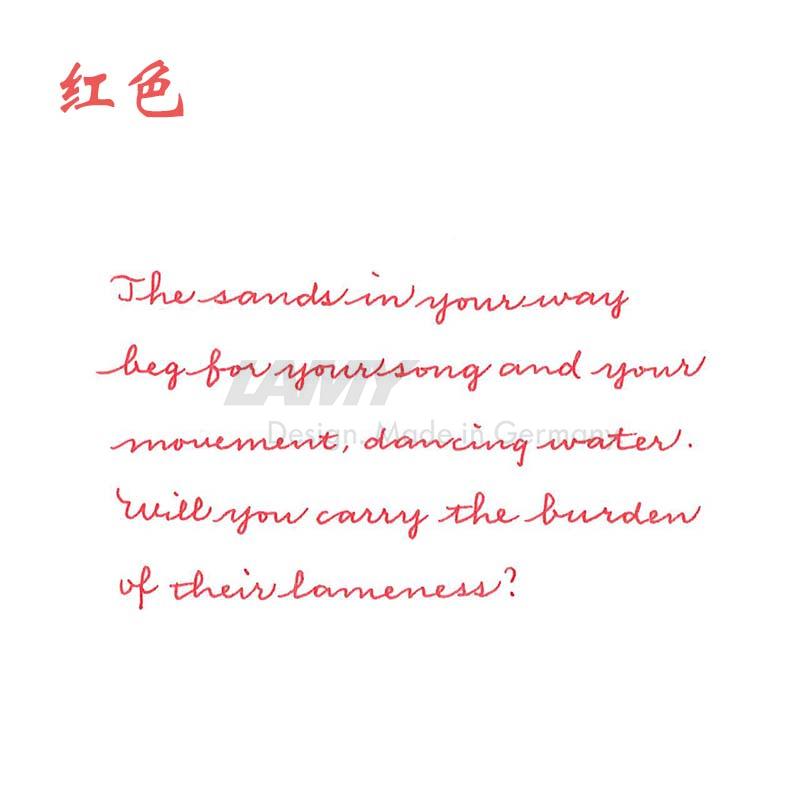 红色
The sands in your way
beg for your song and your
LAMY
Design. Made in Germany
movement, dancing water.
Will you carry the burden
of their lameness?